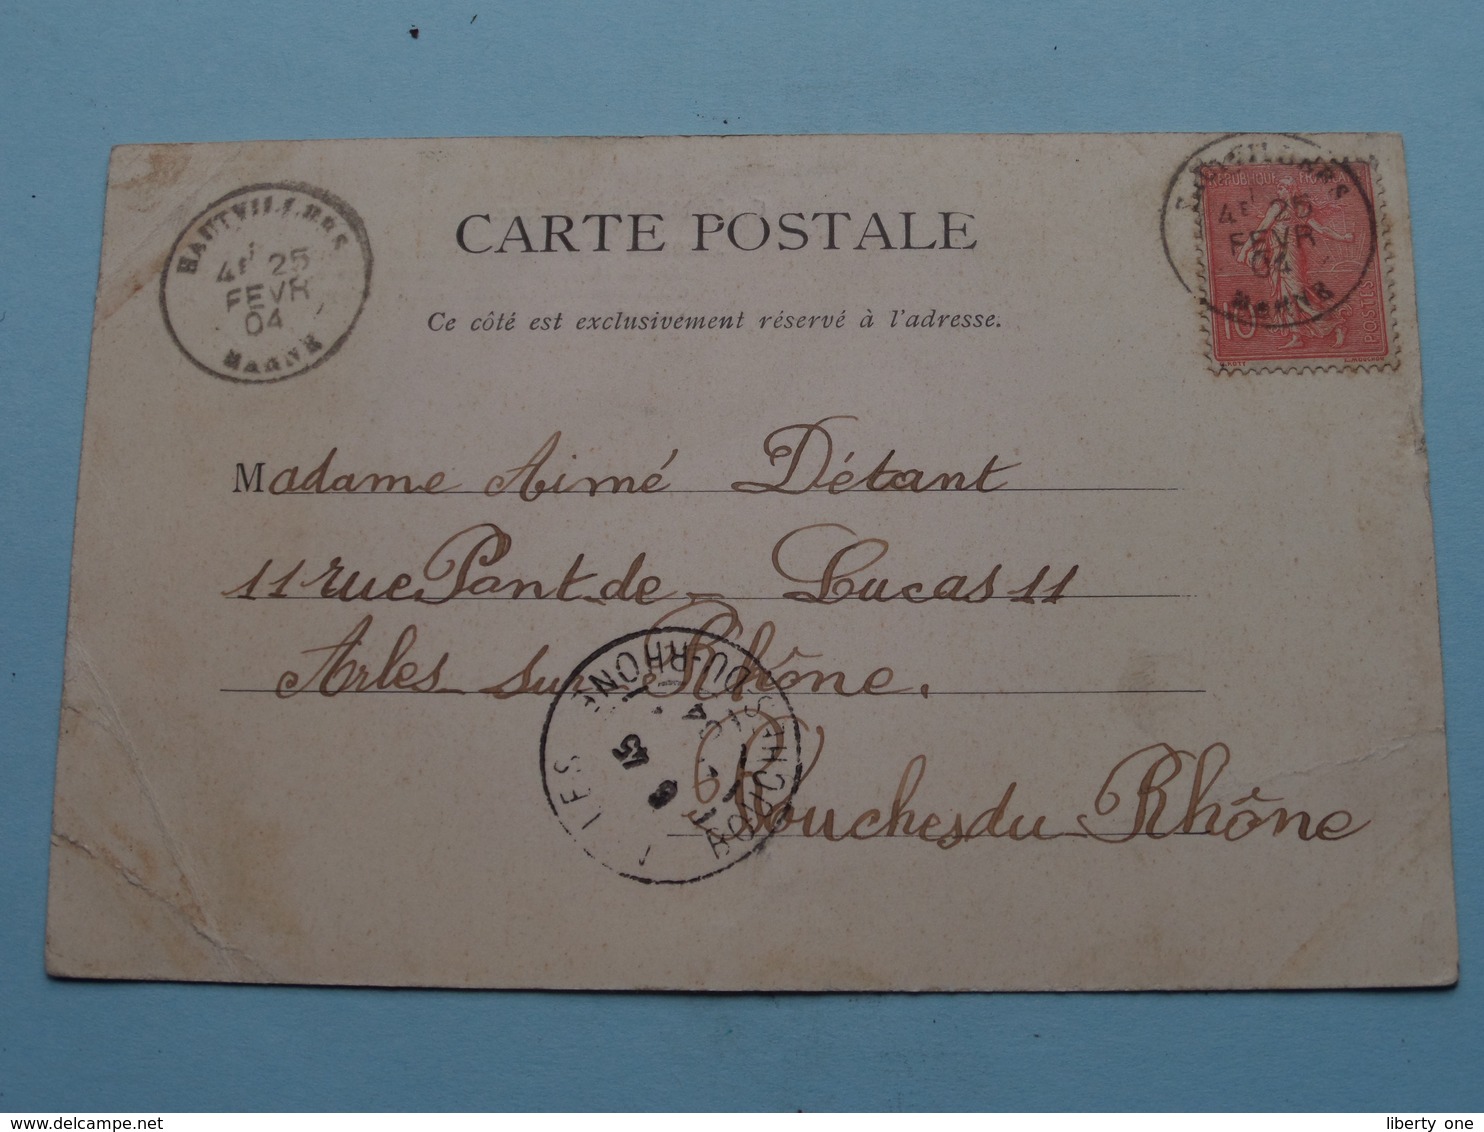 HAUTVILLERS
4E 25
FEVR
04
MARNE
CARTE POSTALE
Ce côté est exclusivement réservé à l'adresse.
HAUTVILLERS
4E 25
FEVR
04
MARNE
REPUBLIQUE FRANÇAISE
10
POSTES
Madame Aimé Détant
11 rue Pant de Lucas 11
Arles sur Rhône.
Bouches du Rhône
BOUCHES-DU-RHONE
liberty one